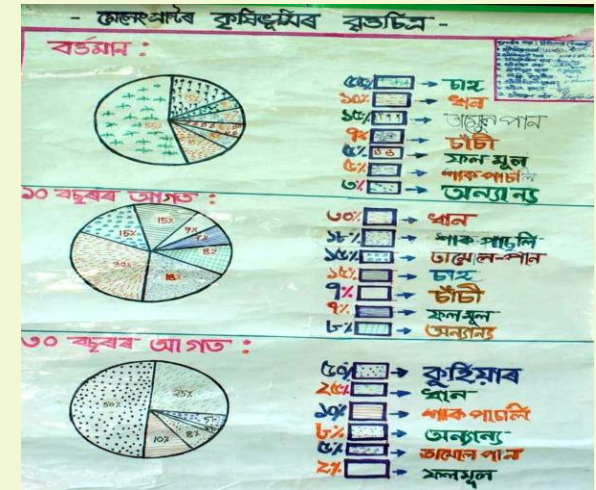 - মেলেং গ্ৰান্টৰ কৃষিভূমিৰ বৃত্তচিত্ৰ -
বৰ্তমান :
55%
৫৫% → চাহ
১০% → ধান
১৫% → তামোল পান
৭% → চাঁচী
৫% → ফল মূল
৫% → শাক পাচলি
৩% → অন্যান্য
১০ বছৰৰ আগত :
15%
15%
7%
7%
8%
30%
18%
৩০% → ধান
১৮% → শাক পাচলি
১৫% → তামোল-পান
১৫% → চাহ
৭% → চাঁচী
৭% → ফলমূল
৮% → অন্যান্য
৩০ বছৰৰ আগত :
50%
25%
8%
10%
৫০% → কুহিয়াৰ
২৫% → ধান
১০% → শাক পাচলি
৮% → অন্যান্য
৫% → তামোল পান
২% → ফলমূল